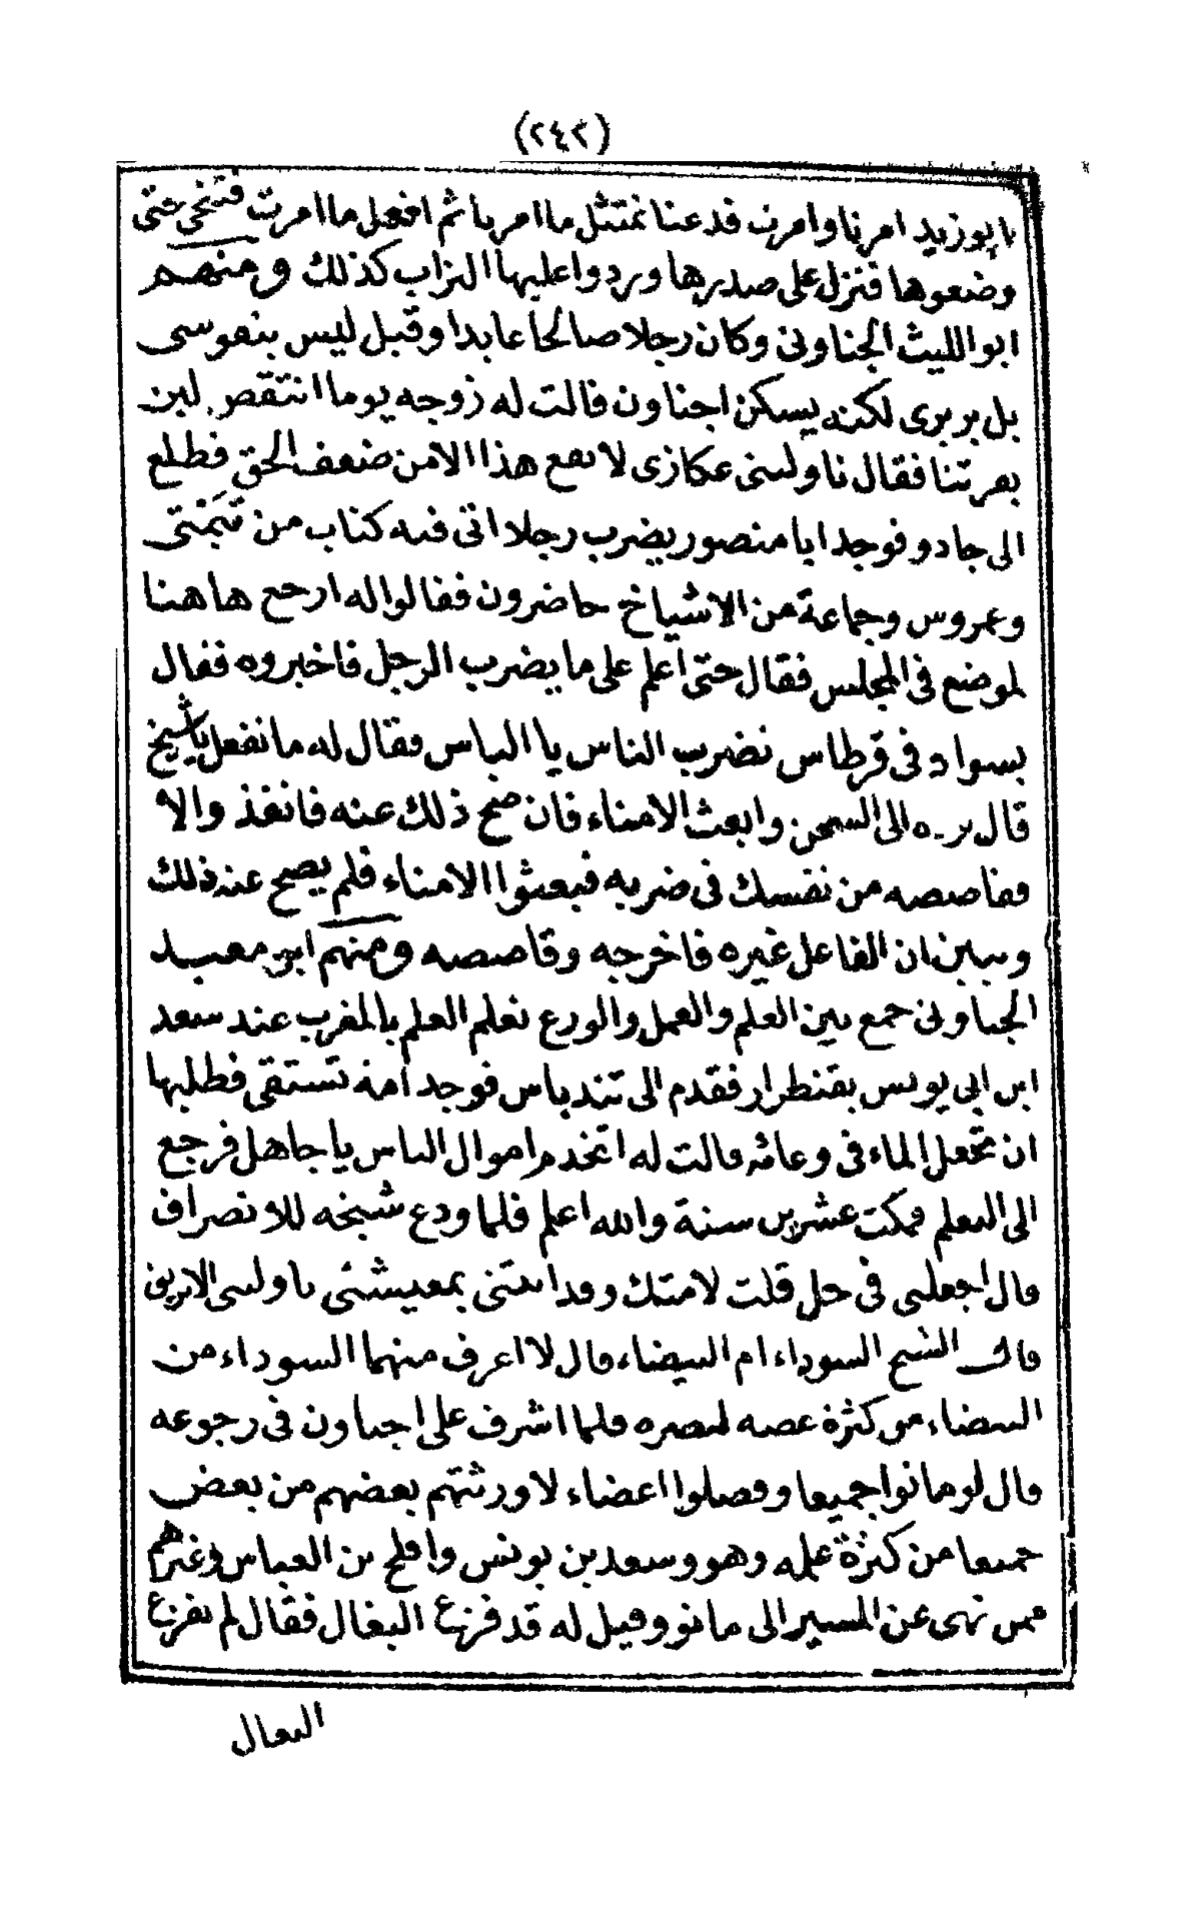 (٢٤٢)
يا بوزيد امرنا وامرت فدعنا نمتثل ما امرنا ثم افعل ما امرت فتنحى حتى
وضعوها فنزل على صدرها وردوا عليها التراب كذلك ومنهم
ابو الليث الجناونى وكان رجلا صالحا عابدا وقيل ليس بنفوسى
بل بربرى لكنه يسكن اجناون قالت له زوجه يوما انتقص لبن
بقرتنا فقال ناولينى عكازى لا يقع هذا الا من ضعف الحق فطلع
الى جادو فوجد ابا منصور يضرب رجلا اتى فيه كتاب من تيجتى
وعمروس وجماعة من الاشياخ حاضرون فقالوا له ارجع هاهنا
لموضع فى المجلس فقال حتى اعلم على ما يضرب الرجل فاخبروه فقال
بسواد فى قرطاس نضرب الناس يا الياس فقال له ما نفعل يا شيخ
قال رده الى السجن وابعث الامناء فان صح ذلك عنه فانفذ والا
فقاصصه من نفسك فى ضربه فبعثوا الامناء فلم يصح عنه ذلك
وتبين ان الفاعل غيره فاخرجه وقاصصه ومنهم ابو معبد
الجناونى جمع بين العلم والعمل والورع تعلم العلم بالمغرب عند سعد
ابن ابي يونس بقنطرار فقدم الى تندباس فوجد امة تستقى فطلبها
ان تجعل الماء فى وعائه قالت له اتخدم اموال الناس يا جاهل فرجع
الى التعلم فمكث عشرين سنة والله اعلم فلما ودع شيخه للانصراف
قال اجعلنى فى حل قلت لامتك وقد اتتنى بمعيشتى ناولينى الابريق
قال الشيخ السوداء ام البيضاء قال لا اعرف منهما السوداء من
البيضاء من كثرة غضه لبصره فلما اشرف على اجناون فى رجوعه
قال لو ماتوا جميعا وفصلوا اعضاء لاورثتهم بعضهم من بعض
جميعا من كثرة علمه وهو وسعد بن يونس وافلح بن العباس وغيرهم
ممن نهى عن المسير الى مانو وقيل له قد فزع البغال فقال لم تفزع
البغال